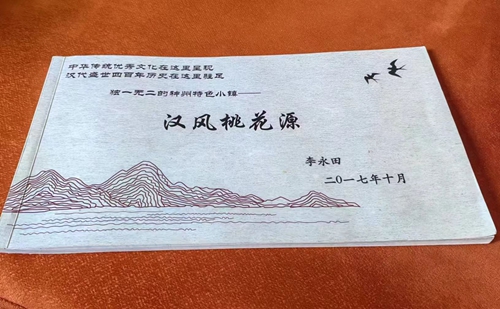 中华传统优秀文化在这里呈现
汉代盛世四百年历史在这里驻足
独一无二的神州特色小镇——
汉风桃花源
李永田
二〇一七年十月